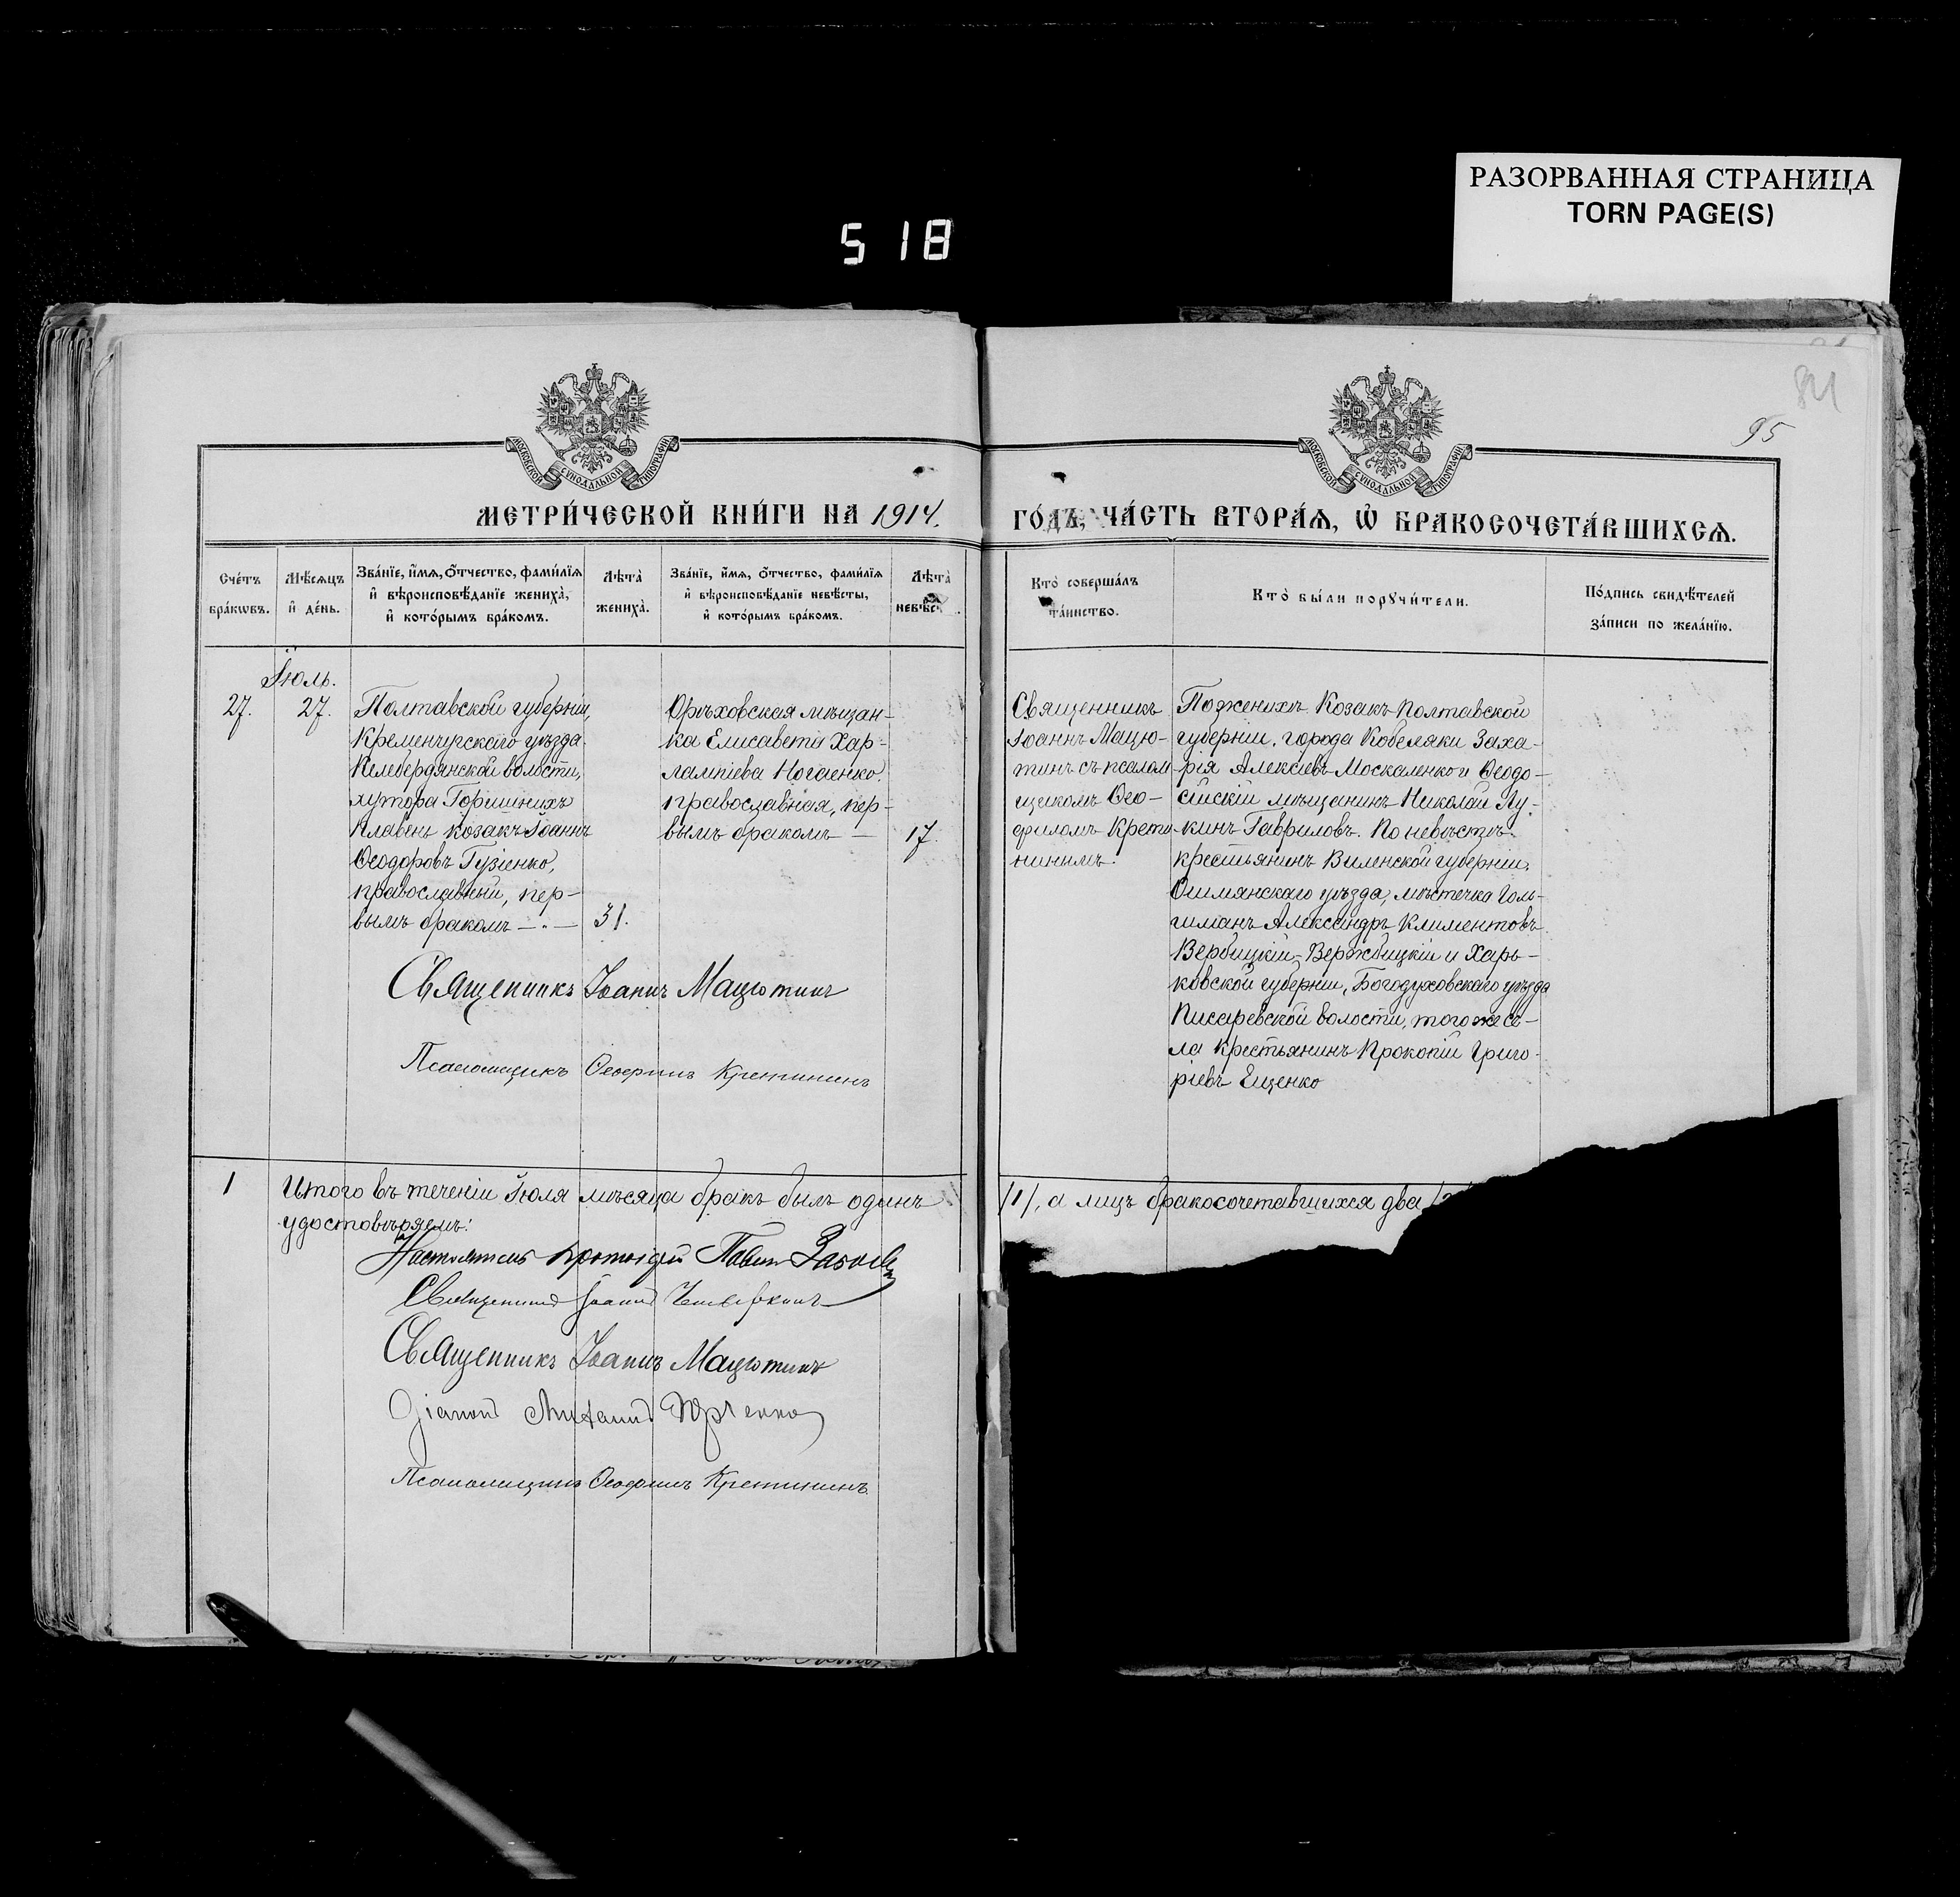 РАЗОРВАННАЯ СТРАНИЦА
TORN PAGE(S)
518
84
95
МОСКОВСКОЙ СѴНОДАЛЬНОЙ ТИПОГРАФІИ
МОСКОВСКОЙ СѴНОДАЛЬНОЙ ТИПОГРАФІИ
МЕТРИ́ЧЕСКОЙ КНИ́ГИ НА 1914.
ГО́ДЪ, ЧА́СТЬ ВТОРА́Я, Ѡ҆ БРАКОСОЧЕТА́ВШИХСЯ.
Сче́тъ
бра́кѡвъ.
Мѣ́сяцъ
и҆ де́нь.
Зва́нїе, и҆́мя, ѻ҆́тчество, фами́лїя
и҆ вѣроисповѣ́данїе жениха̀,
и҆ кото́рымъ бра́комъ.
Лѣта̀
жениха̀.
Зва́нїе, и҆́мя, ѻ҆́тчество, фами́лїя
и҆ вѣроисповѣ́данїе невѣ́сты,
и҆ кото́рымъ бра́комъ.
Лѣта̀
невѣ́с
Кто̀ соверша́лъ
та́инство.
Кто̀ бы́ли порꙋчи́тели.
По́дпись свидѣ́телей
за́писи по жела́нїю.
Іюль.
27.
27.
Полтавской губерніи,
Кременчугскаго уѣзда
Келебердянской волости,
хутора Горишнихъ
Плавень козакъ Іоаннъ
Ѳеодоровъ Гузіенко,
православный, пер-
вымъ бракомъ —.—
31.
Орѣховская мѣщан-
ка Елисавета Хар-
лампіева Ногаенко.
православная, пер-
вымъ бракомъ —
17.
Священникъ
Іоаннъ Мацю-
тинъ съ псалом
щикомъ Ѳео-
филомъ Крети-
нинымъ.
По женихѣ. Козакъ Полтавской
губерніи. города Кобеляки Заха-
рія Алексіевъ Москаленко и Ѳеодо-
сійскій мѣщанинъ Николай Лу-
кинъ Гавриловъ. По невѣстѣ.
крестьянинъ Виленской губерніи.
Ошмянскаго уѣзда, мѣстечка Голь-
шманъ Александръ Климентовъ
Вербицкій-Вержбицкій и Харь-
ковской губерніи, Богодуховскаго уѣзда
Писаревской волости, того же се-
ла крестьянинъ Прокопій Григо-
ріевъ Ещенко
Священникъ Іоаннъ Мацютинъ
Псаломщикъ Ѳеофилъ Кретининъ
1
Итого въ теченіи Іюля мѣсяца бракъ былъ одинъ
/1/, а лицъ бракосочетавшихся два /2
удостовѣряемъ:
Настоятель Протоіерей Павелъ
Священникъ Іоаннъ
Священникъ Іоаннъ Мацютинъ
Діаконъ Михаилъ Юрченко
Псаломщикъ Ѳеофилъ Кретининъ.